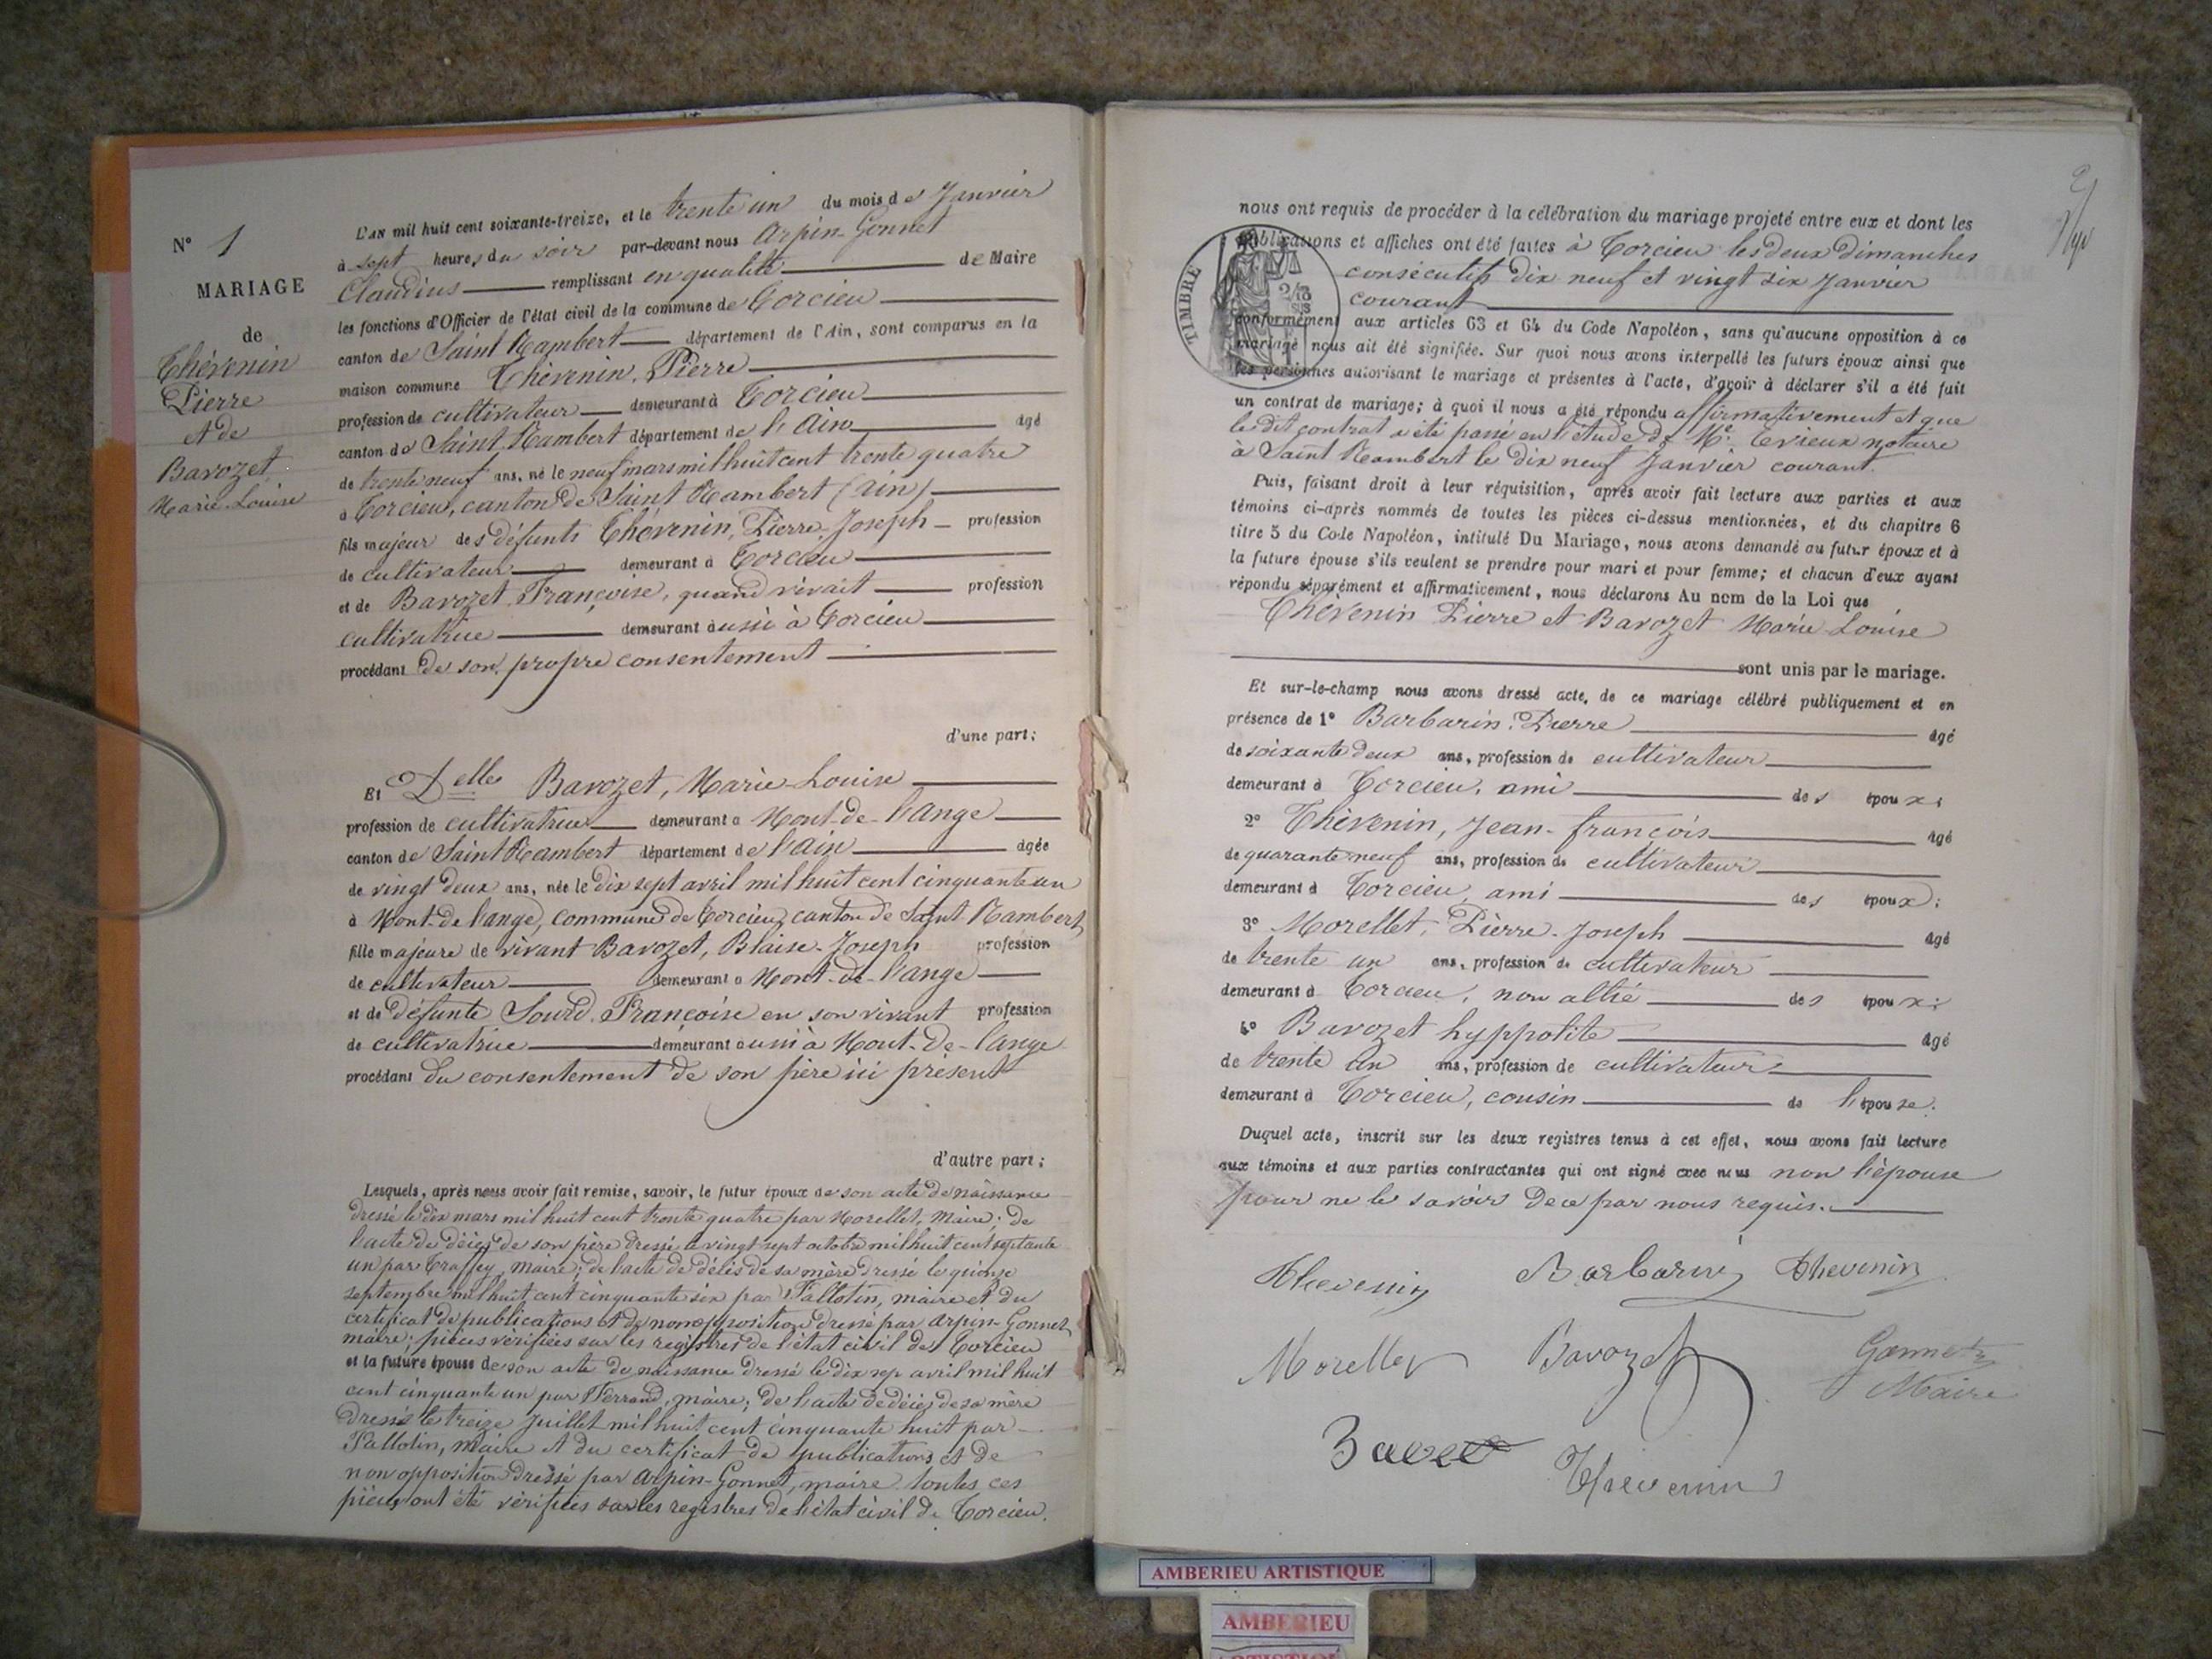 N° 1
MARIAGE
de
Thévenin
Pierre
et de
Bavozet,
Marie-Louise
L'AN mil huit cent soixante-treize, et le trente un du mois de Janvier
à sept heures du soir par-devant nous Arpin-Gonnet
Claudius remplissant en qualité de Maire
les fonctions d'Officier de l'état civil de la commune de Torcieu
canton de Saint Rambert département de l'Ain, sont comparus en la
maison commune Thévenin, Pierre
profession de cultivateur demeurant à Torcieu
canton de Saint Rambert département de l'Ain âgé
de trente neuf ans, né le neuf mars mil huit cent trente quatre
à Torcieu, canton de Saint Rambert (Ain)
fils majeur des défunts Thévenin, Pierre-Joseph profession
de cultivateur demeurant à Torcieu
et de Bavozet, Françoise, quand vivait profession
cultivatrice demeurant aussi à Torcieu
procédant de son propre consentement
d'une part;
Et Delle Bavozet, Marie-Louise
profession de cultivatrice demeurant à Mont-de-l'ange
canton de Saint Rambert département de l'Ain âgée
de vingt deux ans, née le dix sept avril mil huit cent cinquante un
à Mont-de-l'ange, commune de Torcieu, canton de Saint Rambert
fille majeure de vivant Bavozet, Blaise-Joseph profession
de cultivateur demeurant à Mont-de-l'ange
et de défunte Sourd, Françoise en son vivant profession
de cultivatrice demeurant aussi à Mont-de-l'ange
procédant du consentement de son père ici présent
d'autre part;
Lesquels, après nous avoir fait remise, savoir, le futur époux de son acte de naissance
dressé le dix mars mil huit cent trente quatre par Morellet, Maire; de
l'acte de décès de son père dressé le vingt sept octobre mil huit cent septante
un par Traffey, maire; de l'acte de décès de sa mère dressé le quinze
septembre mil huit cent cinquante six par Pallotin, maire et du
certificat de publications et de non opposition dressé par Arpin-Gonnet,
maire; pièces vérifiées sur les registres de l'état civil de Torcieu
et la future épouse de son acte de naissance dressé le dix sep avril mil huit
cent cinquante un par Ferrand, maire; de l'acte de décès de sa mère
dressé le treize Juillet mil huit cent cinquante huit par
Pallotin, Maire et du certificat de publications et de
non opposition dressé par Arpin-Gonnet, maire toutes ces
pièces ont été vérifiées sur les registres de l'état civil de Torcieu.
nous ont requis de procéder à la célébration du mariage projeté entre eux et dont les
publications et affiches ont été faites à Torcieu les deux dimanches
consécutifs dix neuf et vingt six Janvier
courant
TIMBRE
conformément aux articles 63 et 64 du Code Napoléon, sans qu'aucune opposition à ce
mariage nous ait été signifiée. Sur quoi nous avons interpellé les futurs époux ainsi que
les personnes autorisant le mariage et présentes à l'acte, d'avoir à déclarer s'il a été fait
un contrat de mariage; à quoi il nous a été répondu affirmativement et que
le dit contrat a été passé en l'étude de Me. notaire
à Saint Rambert le dix neuf Janvier courant.
Puis, faisant droit à leur réquisition, après avoir fait lecture aux parties et aux
témoins ci-après nommés de toutes les pièces ci-dessus mentionnées, et du chapitre 6
titre 5 du Code Napoléon, intitulé Du Mariage, nous avons demandé au futur époux et à
la future épouse s'ils veulent se prendre pour mari et pour femme; et chacun d'eux ayant
répondu séparément et affirmativement, nous déclarons Au nom de la Loi que
Thévenin Pierre et Bavozet Marie-Louise
sont unis par le mariage.
Et sur-le-champ nous avons dressé acte, de ce mariage célébré publiquement et en
présence de 1° Barbarin, Pierre âgé
de soixante deux ans, profession de cultivateur
demeurant à Torcieu, ami des époux;
2° Thévenin, Jean-françois âgé
de quarante neuf ans, profession de cultivateur
demeurant à Torcieu, ami des époux;
3° Morellet, Pierre-Joseph âgé
de trente un ans, profession de cultivateur
demeurant à Torcieu, non allié des époux;
4° Bavozet hyppolite âgé
de trente un ans, profession de cultivateur
demeurant à Torcieu, cousin de l'épouse.
Duquel acte, inscrit sur les deux registres tenus à cet effet, nous avons fait lecture
aux témoins et aux parties contractantes qui ont signé avec nous non l'épouse
pour ne le savoir de ce par nous requis.
Thevenin Barbarin Thevenin
Morellet Bavozet Gonnet
Maire
Thevenin
AMBERIEU ARTISTIQUE
AMBERIEU
ARTISTIQUE